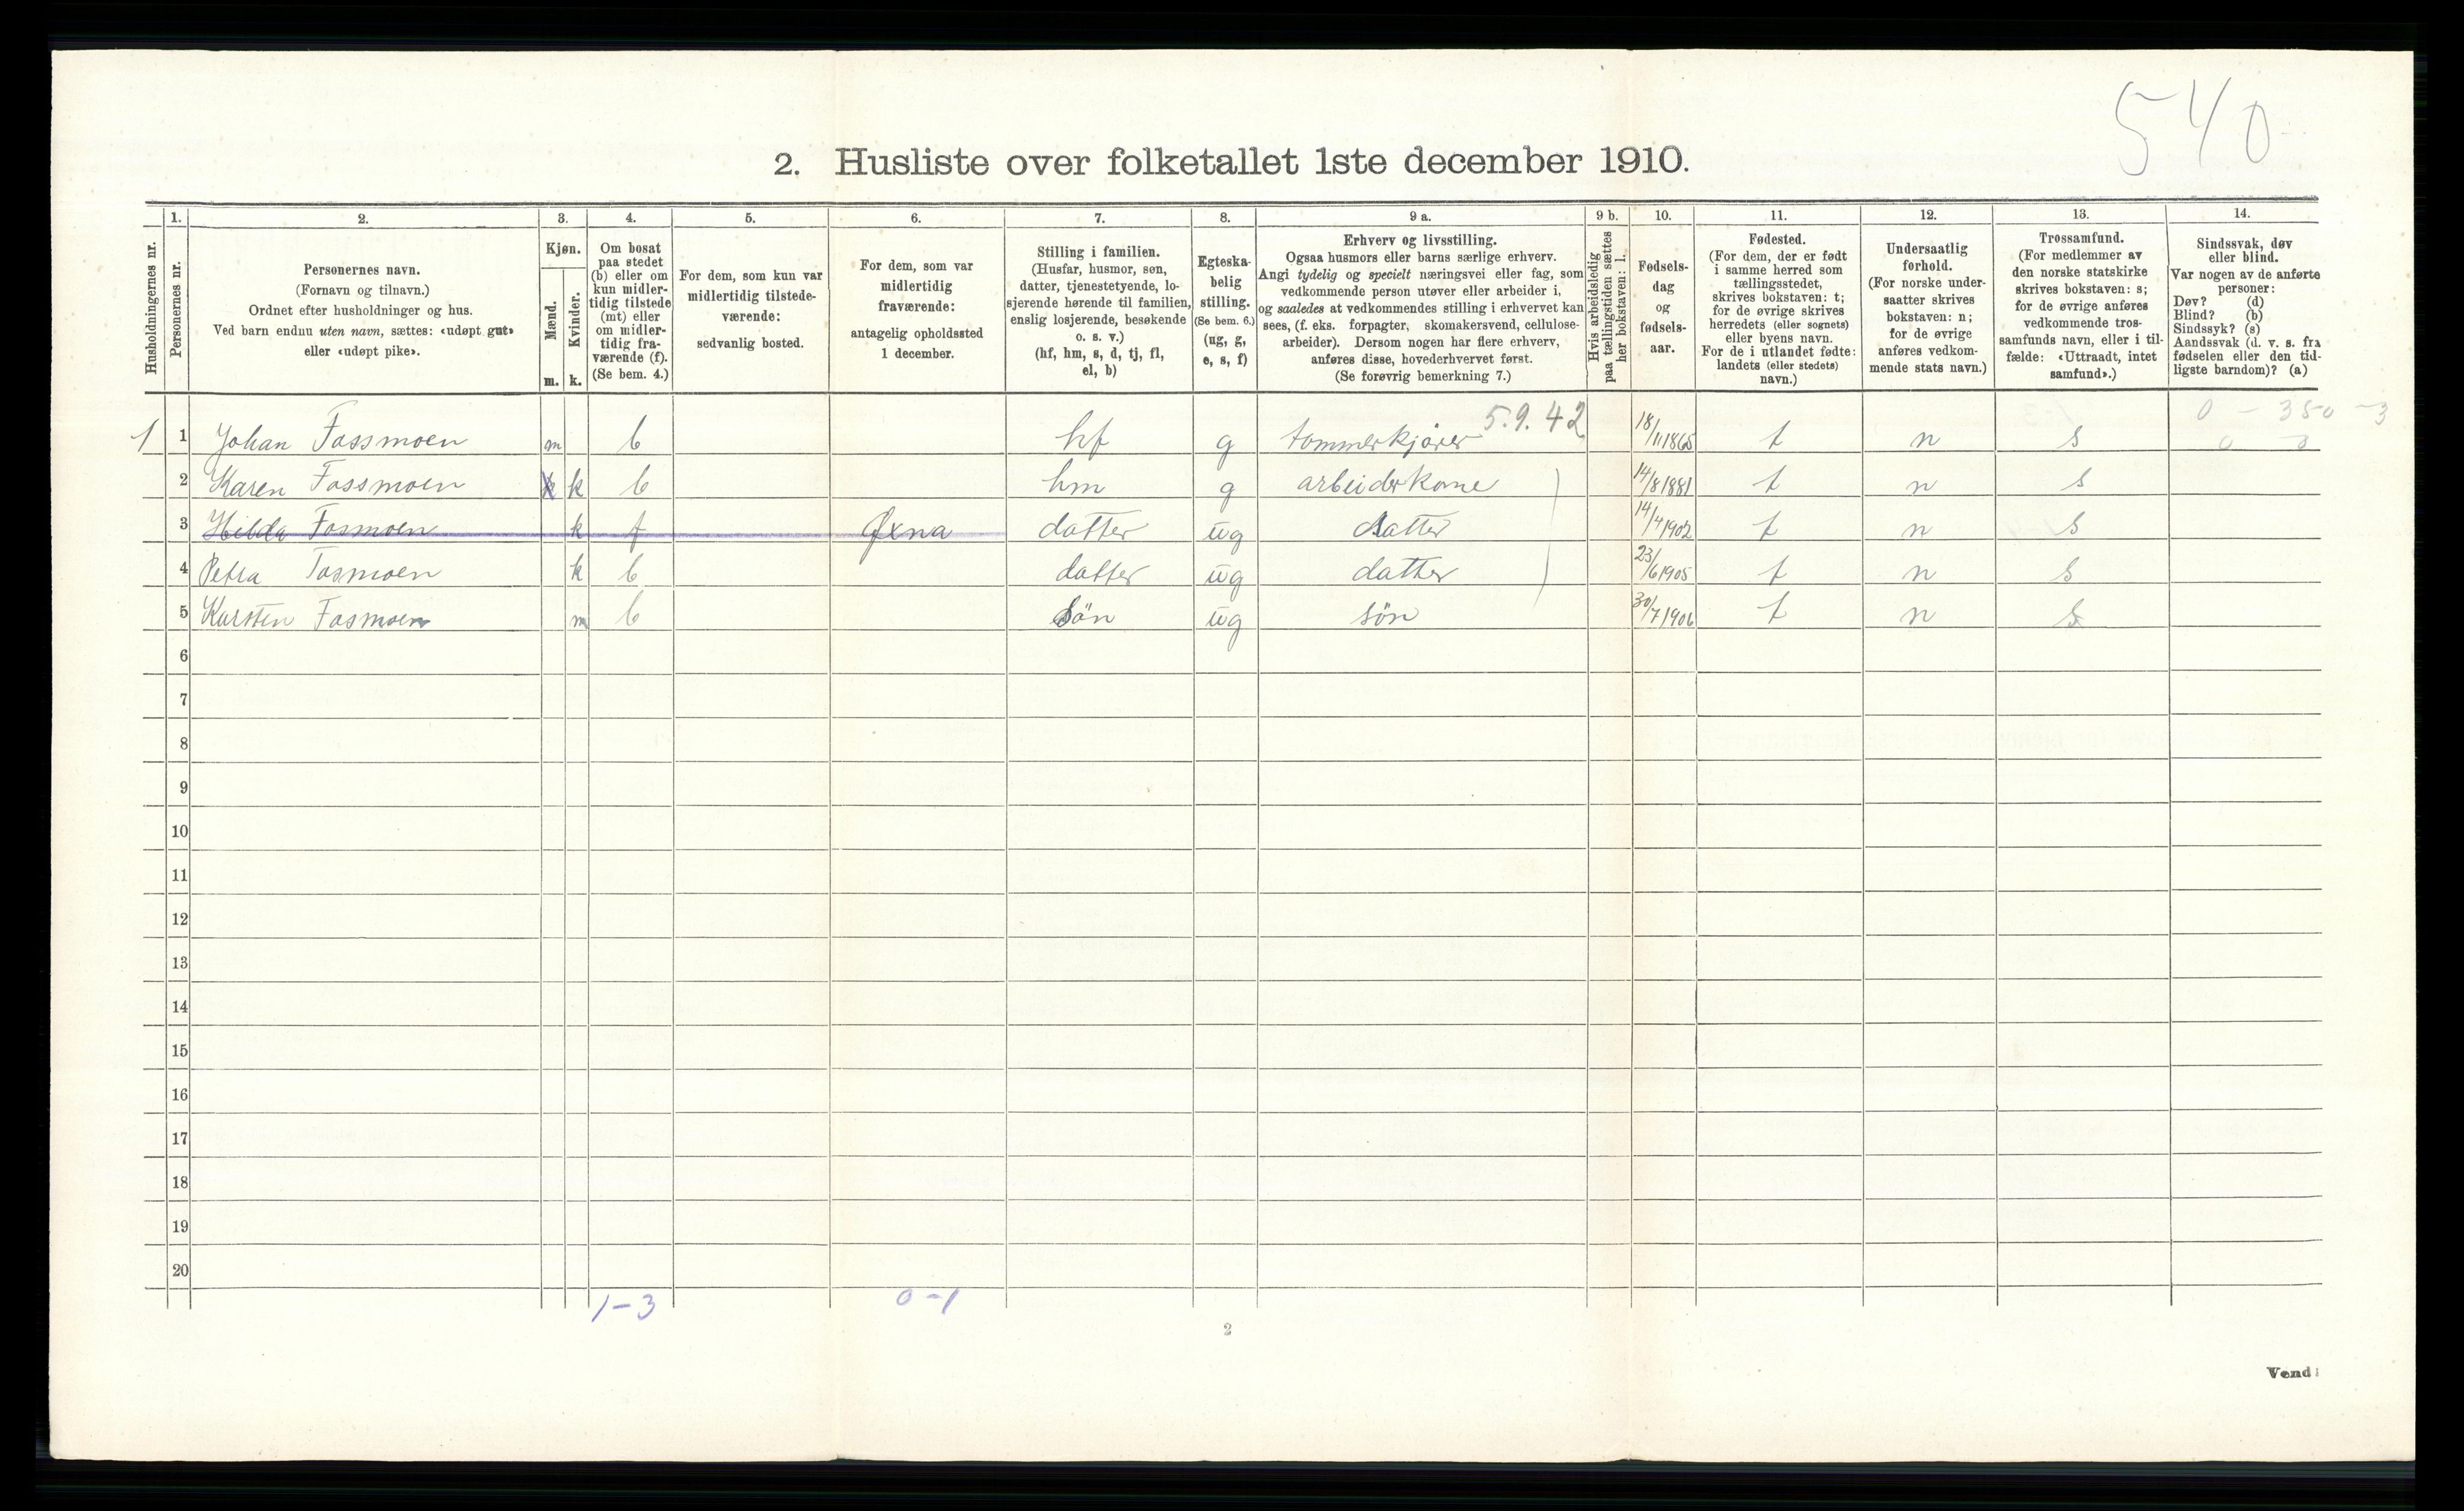 540
2. Husliste over folketallet 1ste december 1910.
Husholdningernes nr.
1. Personernes nr.
2. Personernes navn.
(Fornavn og tilnavn.)
Ordnet efter husholdninger og hus.
Ved barn endnu uten navn, sættes: «udøpt gut»
eller «udøpt pike».
3. Kjøn.
Mænd. m.
Kvinder. k.
4. Om bosat
paa stedet
(b) eller om
kun midler-
tidig tilstede
(mt) eller
om midler-
tidig fra-
værende (f).
(Se bem. 4.)
5. For dem, som kun var
midlertidig tilstede-
værende:
sedvanlig bosted.
6. For dem, som var
midlertidig
fraværende:
antagelig opholdssted
1 december.
7. Stilling i familien.
(Husfar, husmor, søn,
datter, tjenestetyende, lo-
sjerende hørende til familien,
enslig losjerende, besøkende
o. s. v.)
(hf, hm, s, d, tj, fl,
el, b)
8. Egteska-
belig
stilling.
(Se bem. 6.)
(ug, g,
e, s, f)
9 a. Erhverv og livsstilling.
Ogsaa husmors eller barns særlige erhverv.
Angi tydelig og specielt næringsvei eller fag, som
vedkommende person utøver eller arbeider i,
og saaledes at vedkommendes stilling i erhvervet kan
sees, (f. eks. forpagter, skomakersvend, cellulose-
arbeider). Dersom nogen har flere erhverv,
anføres disse, hovederhvervet først.
(Se forøvrig bemerkning 7.)
9 b. Hvis arbeidsledig
paa tællingstiden sættes
her bokstaven: l.
10. Fødsels-
dag
og
fødsels-
aar.
11. Fødested.
(For dem, der er født
i samme herred som
tællingsstedet,
skrives bokstaven: t;
for de øvrige skrives
herredets (eller sognets)
eller byens navn.
For de i utlandet fødte:
landets (eller stedets)
navn.)
12. Undersaatlig
forhold.
(For norske under-
saatter skrives
bokstaven: n;
for de øvrige
anføres vedkom-
mende stats navn.)
13. Trossamfund.
(For medlemmer av
den norske statskirke
skrives bokstaven: s;
for de øvrige anføres
vedkommende tros-
samfunds navn, eller i til-
fælde: «Uttraadt, intet
samfund».)
14. Sindssvak, døv
eller blind.
Var nogen av de anførte
personer:
Døv? (d)
Blind? (b)
Sindssyk? (s)
Aandssvak (d. v. s. fra
fødselen eller den tid-
ligste barndom)? (a)
5.9.42 0 - 350 -3
1 1 Johan Fossmoen m b hf g tømmerkjører 18/11 1865 t n s 0
2 Karen Fossmoen k b hm g arbeiderkone 14/8 1881 t n s
3 Hilda Fosmoen k f Øxna datter ug datter 14/4 1902 t n s
4 Petra Fosmoen k b datter ug datter 23/6 1905 t n s
5 Karsten Fosmoen m b Søn ug søn 30/7 1906 t n s
6
7
8
9
10
11
12
13
14
15
16
17
18
19
20
1-3 0-1
2
Vend!